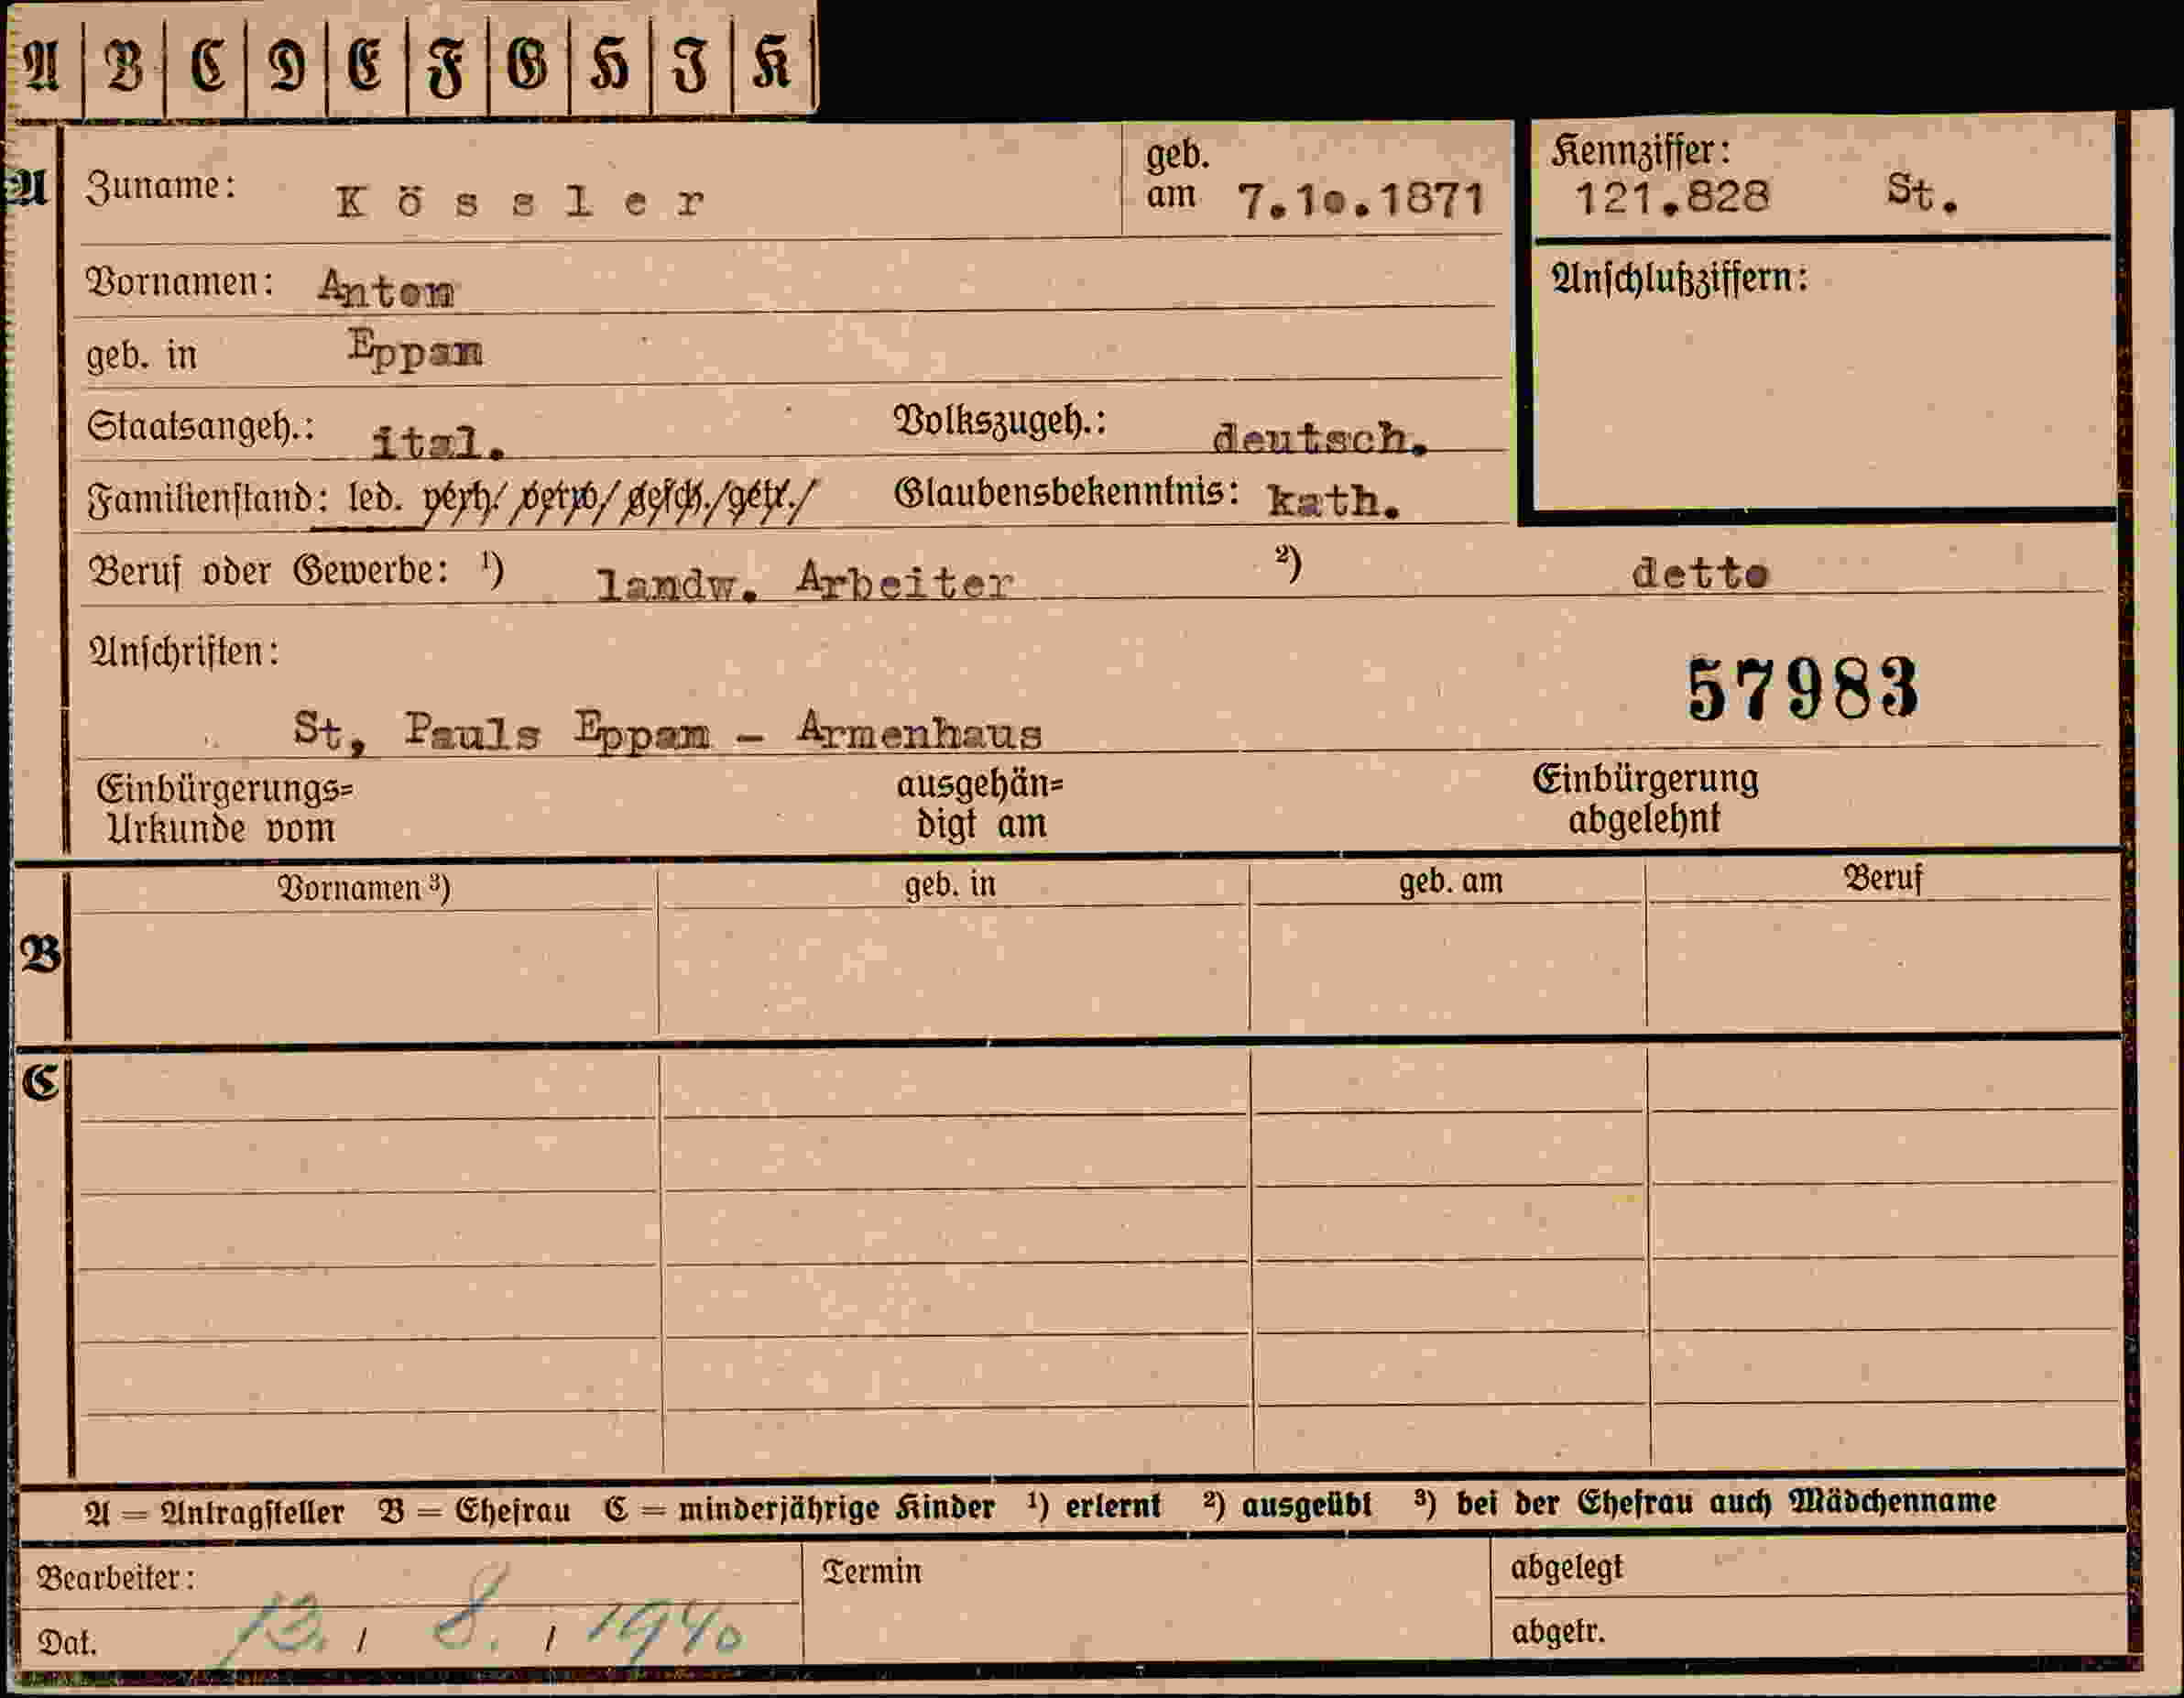 A B C D E F G H I K
A Zuname: Kössler geb. am 7.10.1871 Kennziffer: 121.828 St.
Vornamen: Anton Anschlußziffern:
geb. in Eppan
Staatsangeh.: ital. Volkszugeh.: deutsch.
Familienstand: led. verh. verw. gesch. getr. Glaubensbekenntnis: kath.
Beruf oder Gewerbe: ¹) landw. Arbeiter ²) detto
Anschriften:
57983
St, Pauls Eppan - Armenhaus
Einbürgerungs= ausgehän= Einbürgerung
Urkunde vom digt am abgelehnt
Vornamen ³) geb. in geb. am Beruf
B
C
A = Antragsteller B = Ehefrau C = minderjährige Kinder ¹) erlernt ²) ausgeübt ³) bei der Ehefrau auch Mädchenname
Bearbeiter: Termin abgelegt
Dat. 13. / 8. / 1940 abgetr.